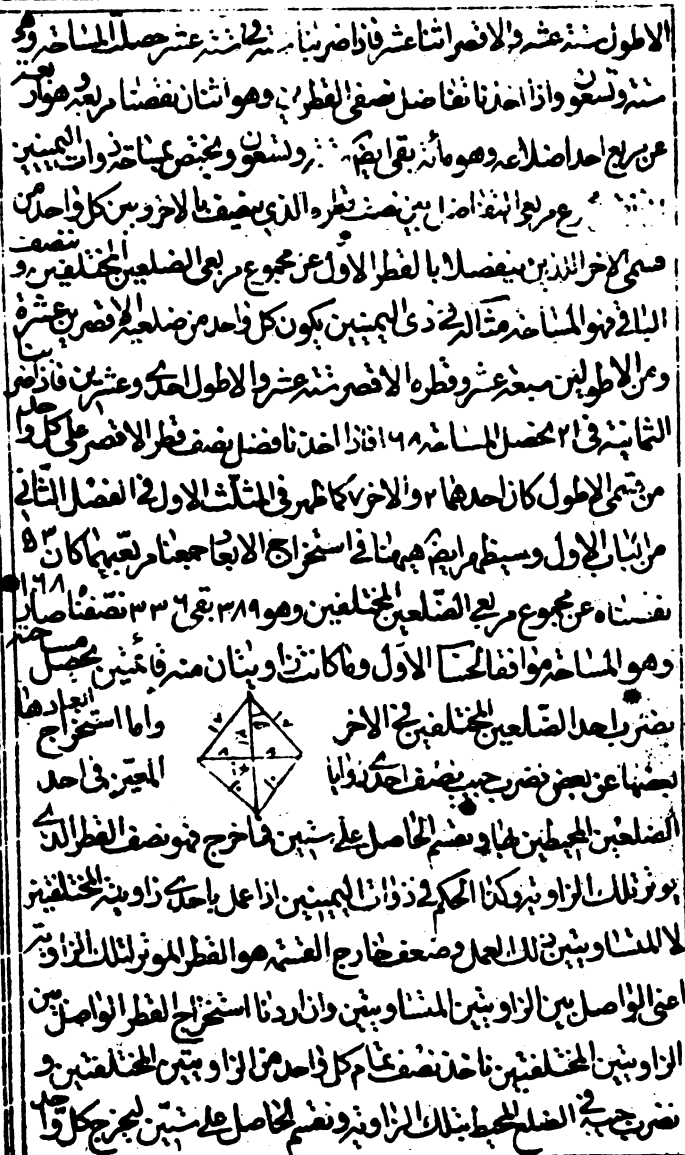 الاطول ستة عشر والاقصر اثنا عشر فاذا ضربنا ستة فى ستة عشر حصلت المساحة وهو
ستة وتسعون واذا اخذنا تفاضل نصفى القطرين وهو اثنان نقصنا مربعه وهو اربعة
عن مربع احد اضلاعه وهو مائة بقى ايضا ستة وتسعون ويختص بمساحة ذوات اليمينين
مربعى التفاضل بين نصف قطره الذى ينصف بالاخر وبين كل واحد من
قسمى الاخر اللذين ينفصلان بالقطر الاول عن مجموع مربعى الضلعين المختلفين وتنصف
الباقى فهو المساحة مثاله فى ذى اليمينين يكون كل واحد من ضلعيه الاقصرين عشرة
ومن الاطولين سبعة عشر وقطره الاقصر ستة عشر والاطول احدى وعشرين فاذا ضربنا
الثمانية فى ٢١ يحصل المساحة ١٦٨ فاذا اخذنا فضل نصف قطر الاقصر على كل واحد
من قسمى الاطول كان احدهما ٢ والاخر ٧ كما ظهر فى المثلث الاول فى الفصل الثانى
من الباب الاول وسيظهر ايضا ههنا فى استخراج الابعاد جمعنا مربعيهما كان ٥٣
نقصناه عن مجموع مربعى الضلعين المختلفين وهو ٣٨٩ بقى ٣٣٦ نصفنا صار ١٦٨
وهو المساحة موافقا لحسابنا الاول وما كانت زاويتان منه قائمتين يحصل مساحته
بضرب احد الضلعين المختلفين فى الاخر واما استخراج ابعادها
بعضها عن بعض نضرب جيب نصف احدى زوايا المعين فى احد
الضلعين المحيطين بها ونقسم الحاصل على ستين فما خرج فهو نصف القطر الذى
يوتر تلك الزاوية وكذا الحكم فى ذوات اليمينين اذا عمل باحدى زاويتيه المختلفتين
لا المتساويتين ذلك العمل وضعف خارج القسمة هو القطر الموتر لتلك الزاوية
اعنى الواصل بين الزاويتين المتساويتين وان اردنا استخراج القطر الواصل بين
الزاويتين المختلفتين ناخذ نصف تمام كل واحد من الزاويتين المختلفتين و
نضرب جيبه فى الضلع المحيط بتلك الزاوية ونقسم الحاصل على ستين ليخرج كل واحد